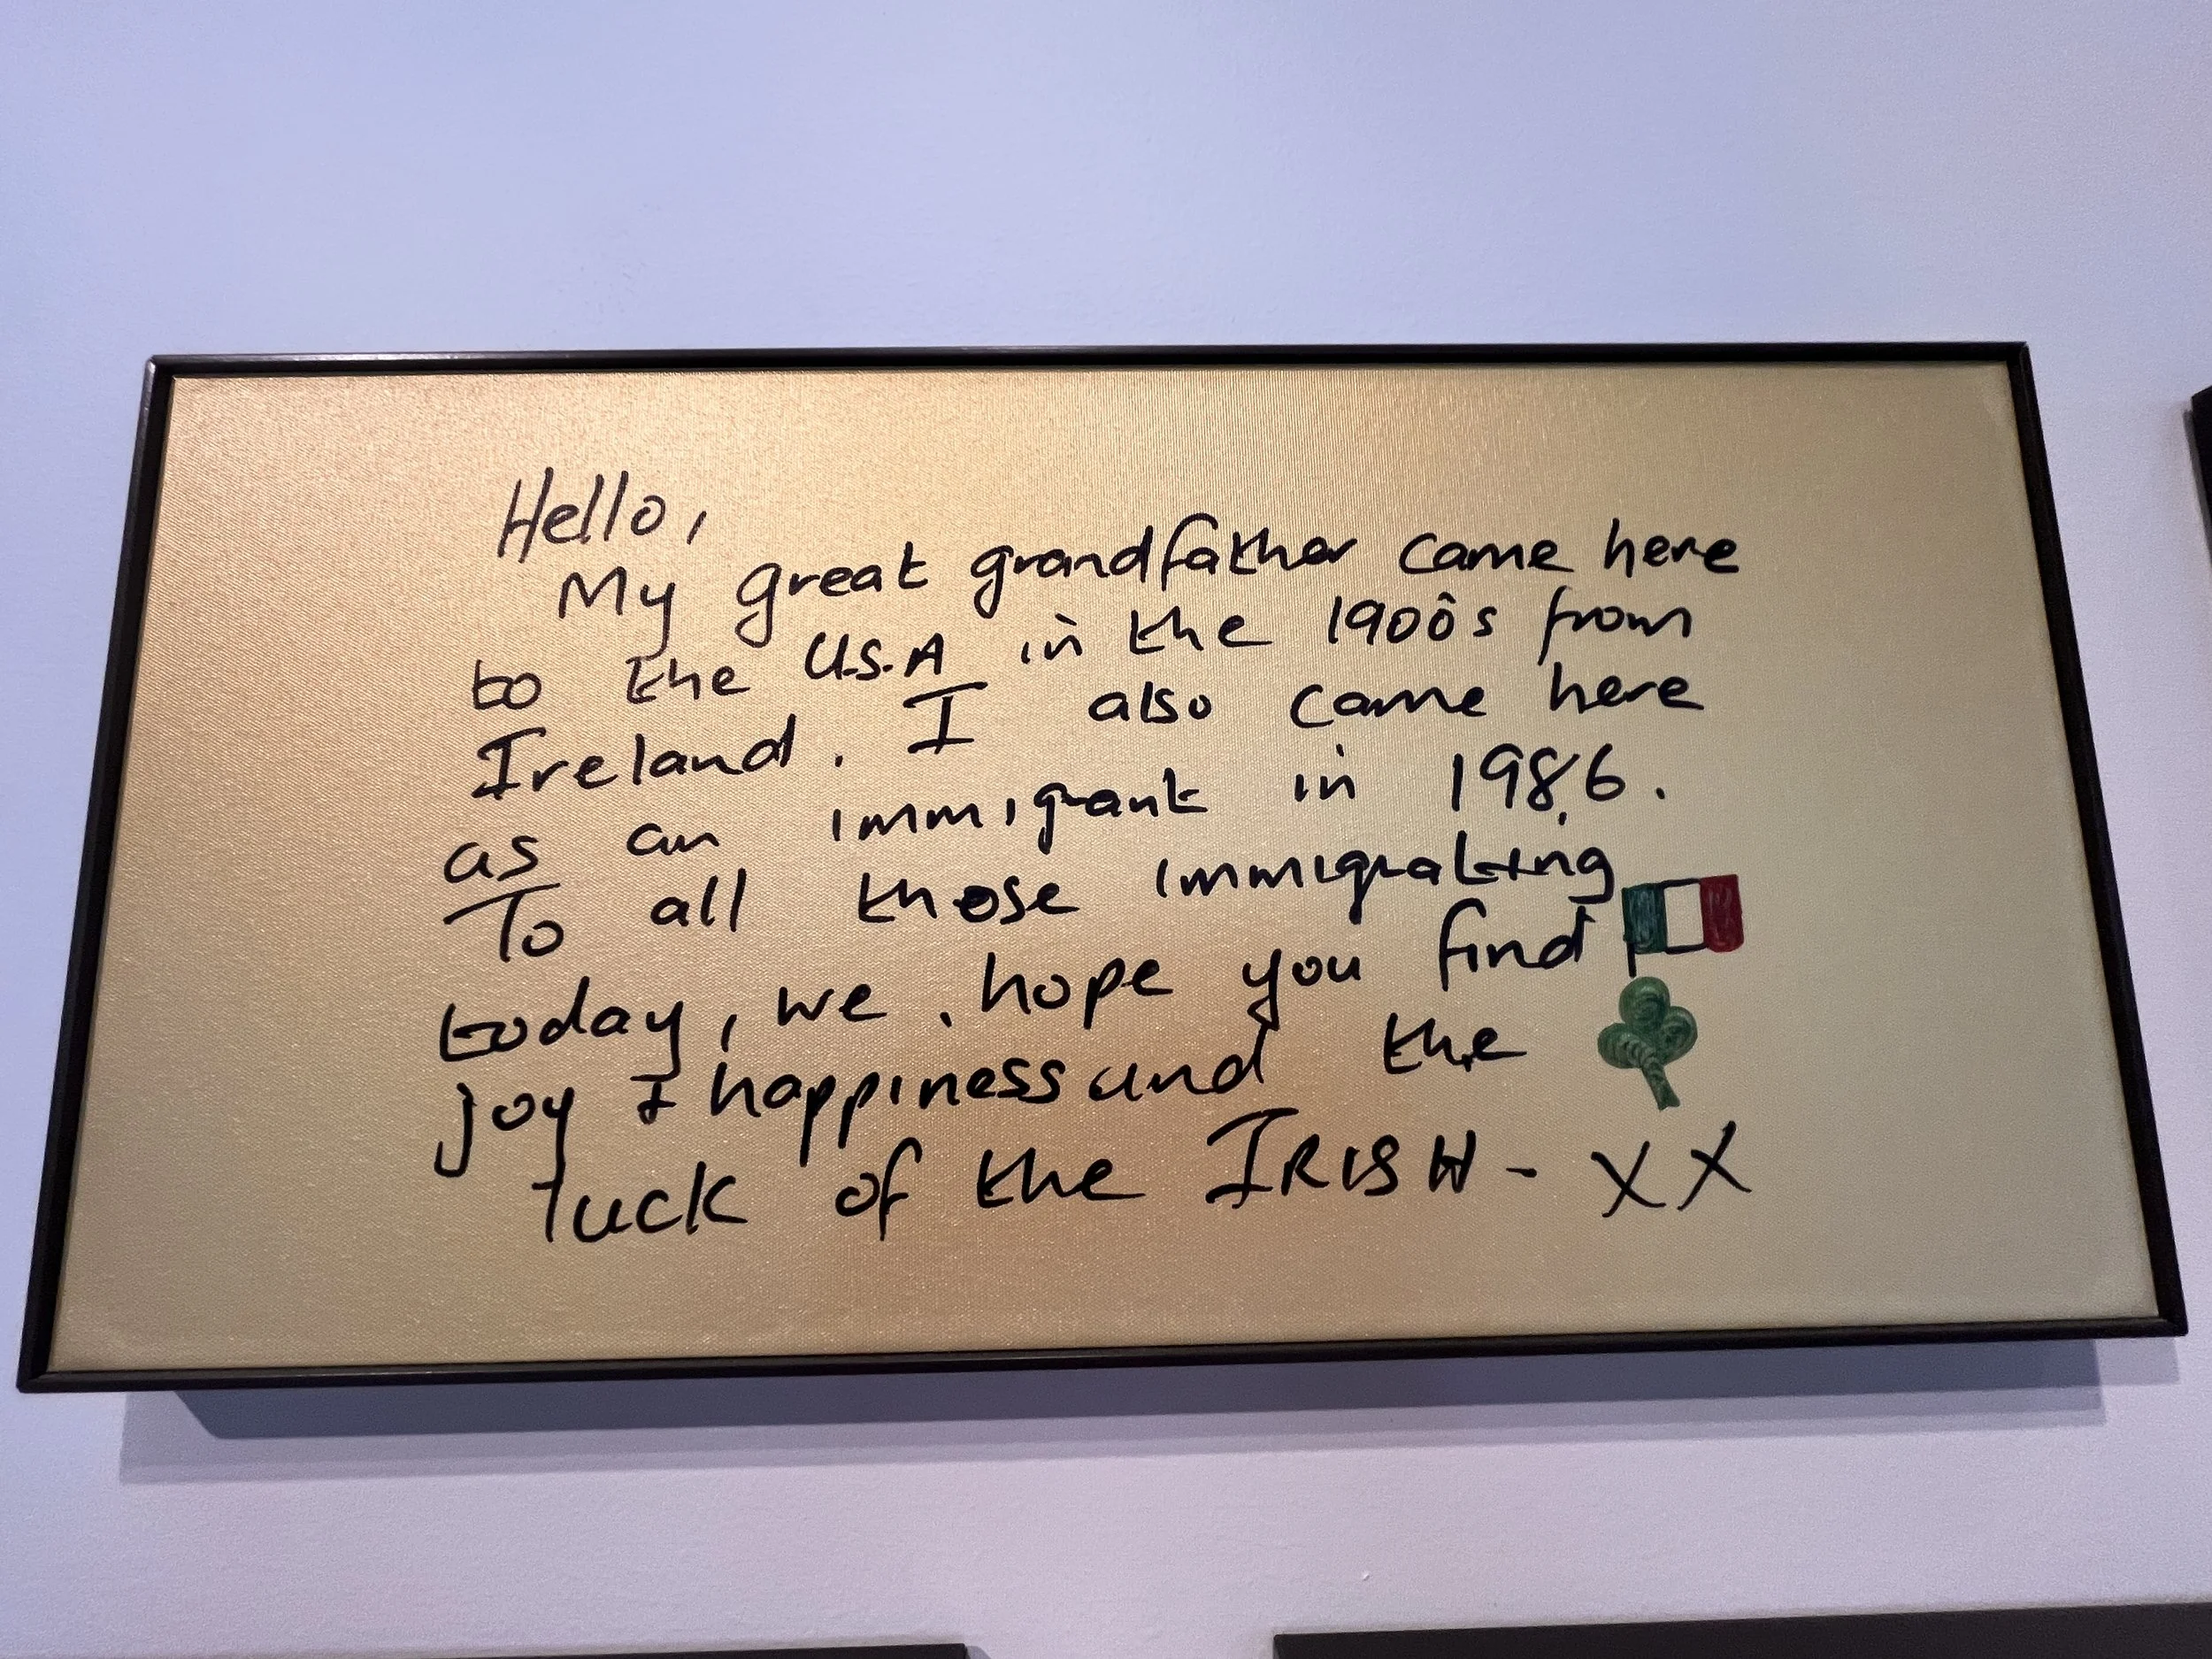 Hello,
My great grandfather came here
to the U.S.A in the 1900's from
Ireland. I also came here
as an immigrant in 1986.
To all those immigrating
today, we hope you find
joy & happiness and the
luck of the IRISH - XX